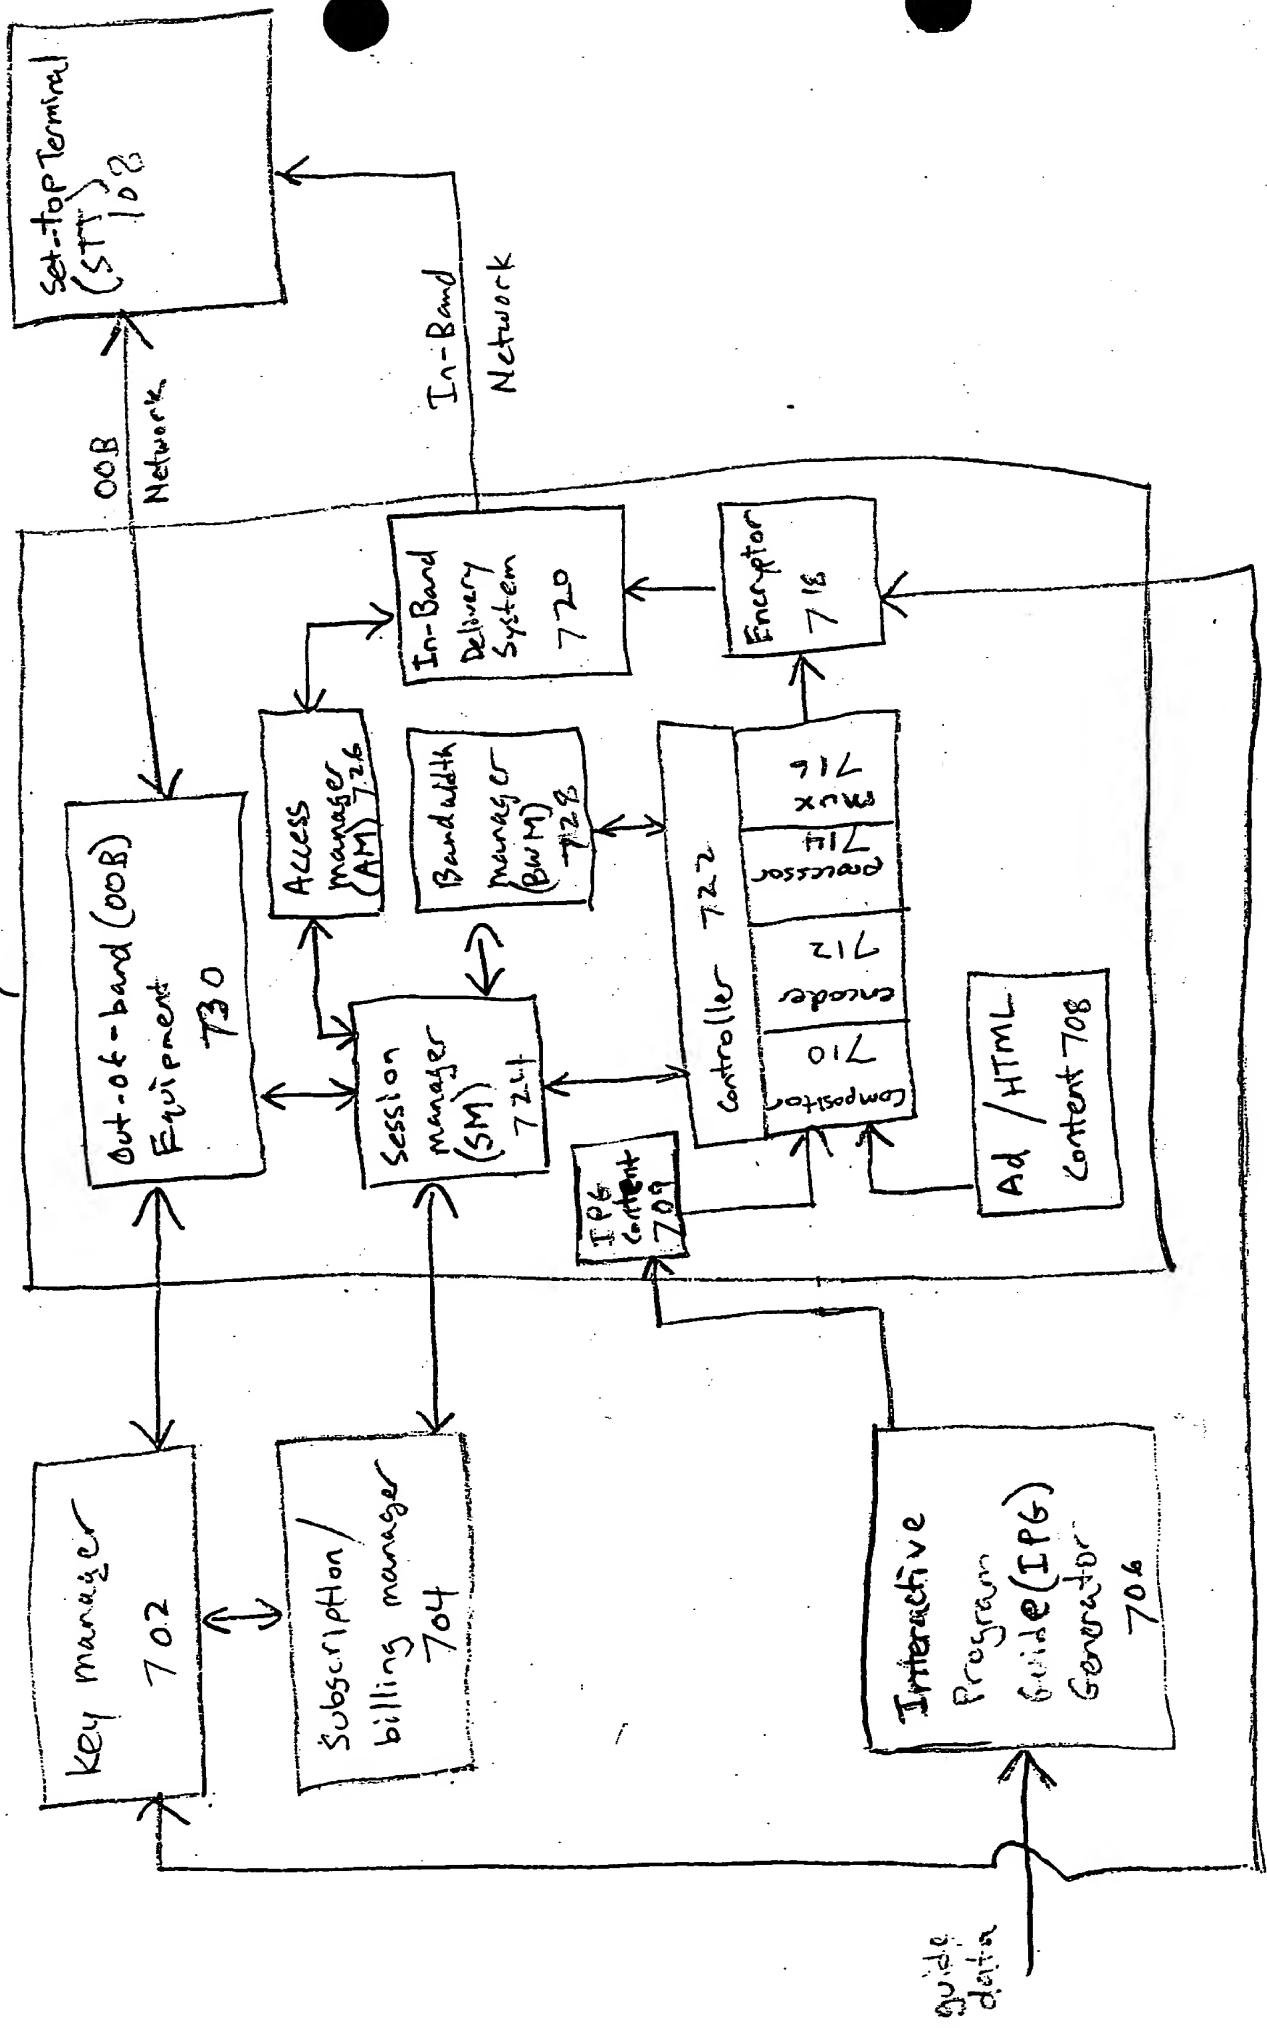 Key manager
702
Subscription/
billing manager
704
Interactive
Program
Guide (IPG)
Generator
706
guide
data
Out-of-band (OOB)
Equipment
730
Session
manager
(SM)
724
Access
manager
(AM) 726
Bandwidth
manager
(BWM)
728
In-Band
Delivery
System
720
IPG
Content
709
Controller 722
Compositor
710
encoder
712
processor
714
mux
716
Encryptor
718
Ad / HTML
Content 708
OOB
Network
In-Band
Network
Set-top Terminal
(STT)
102